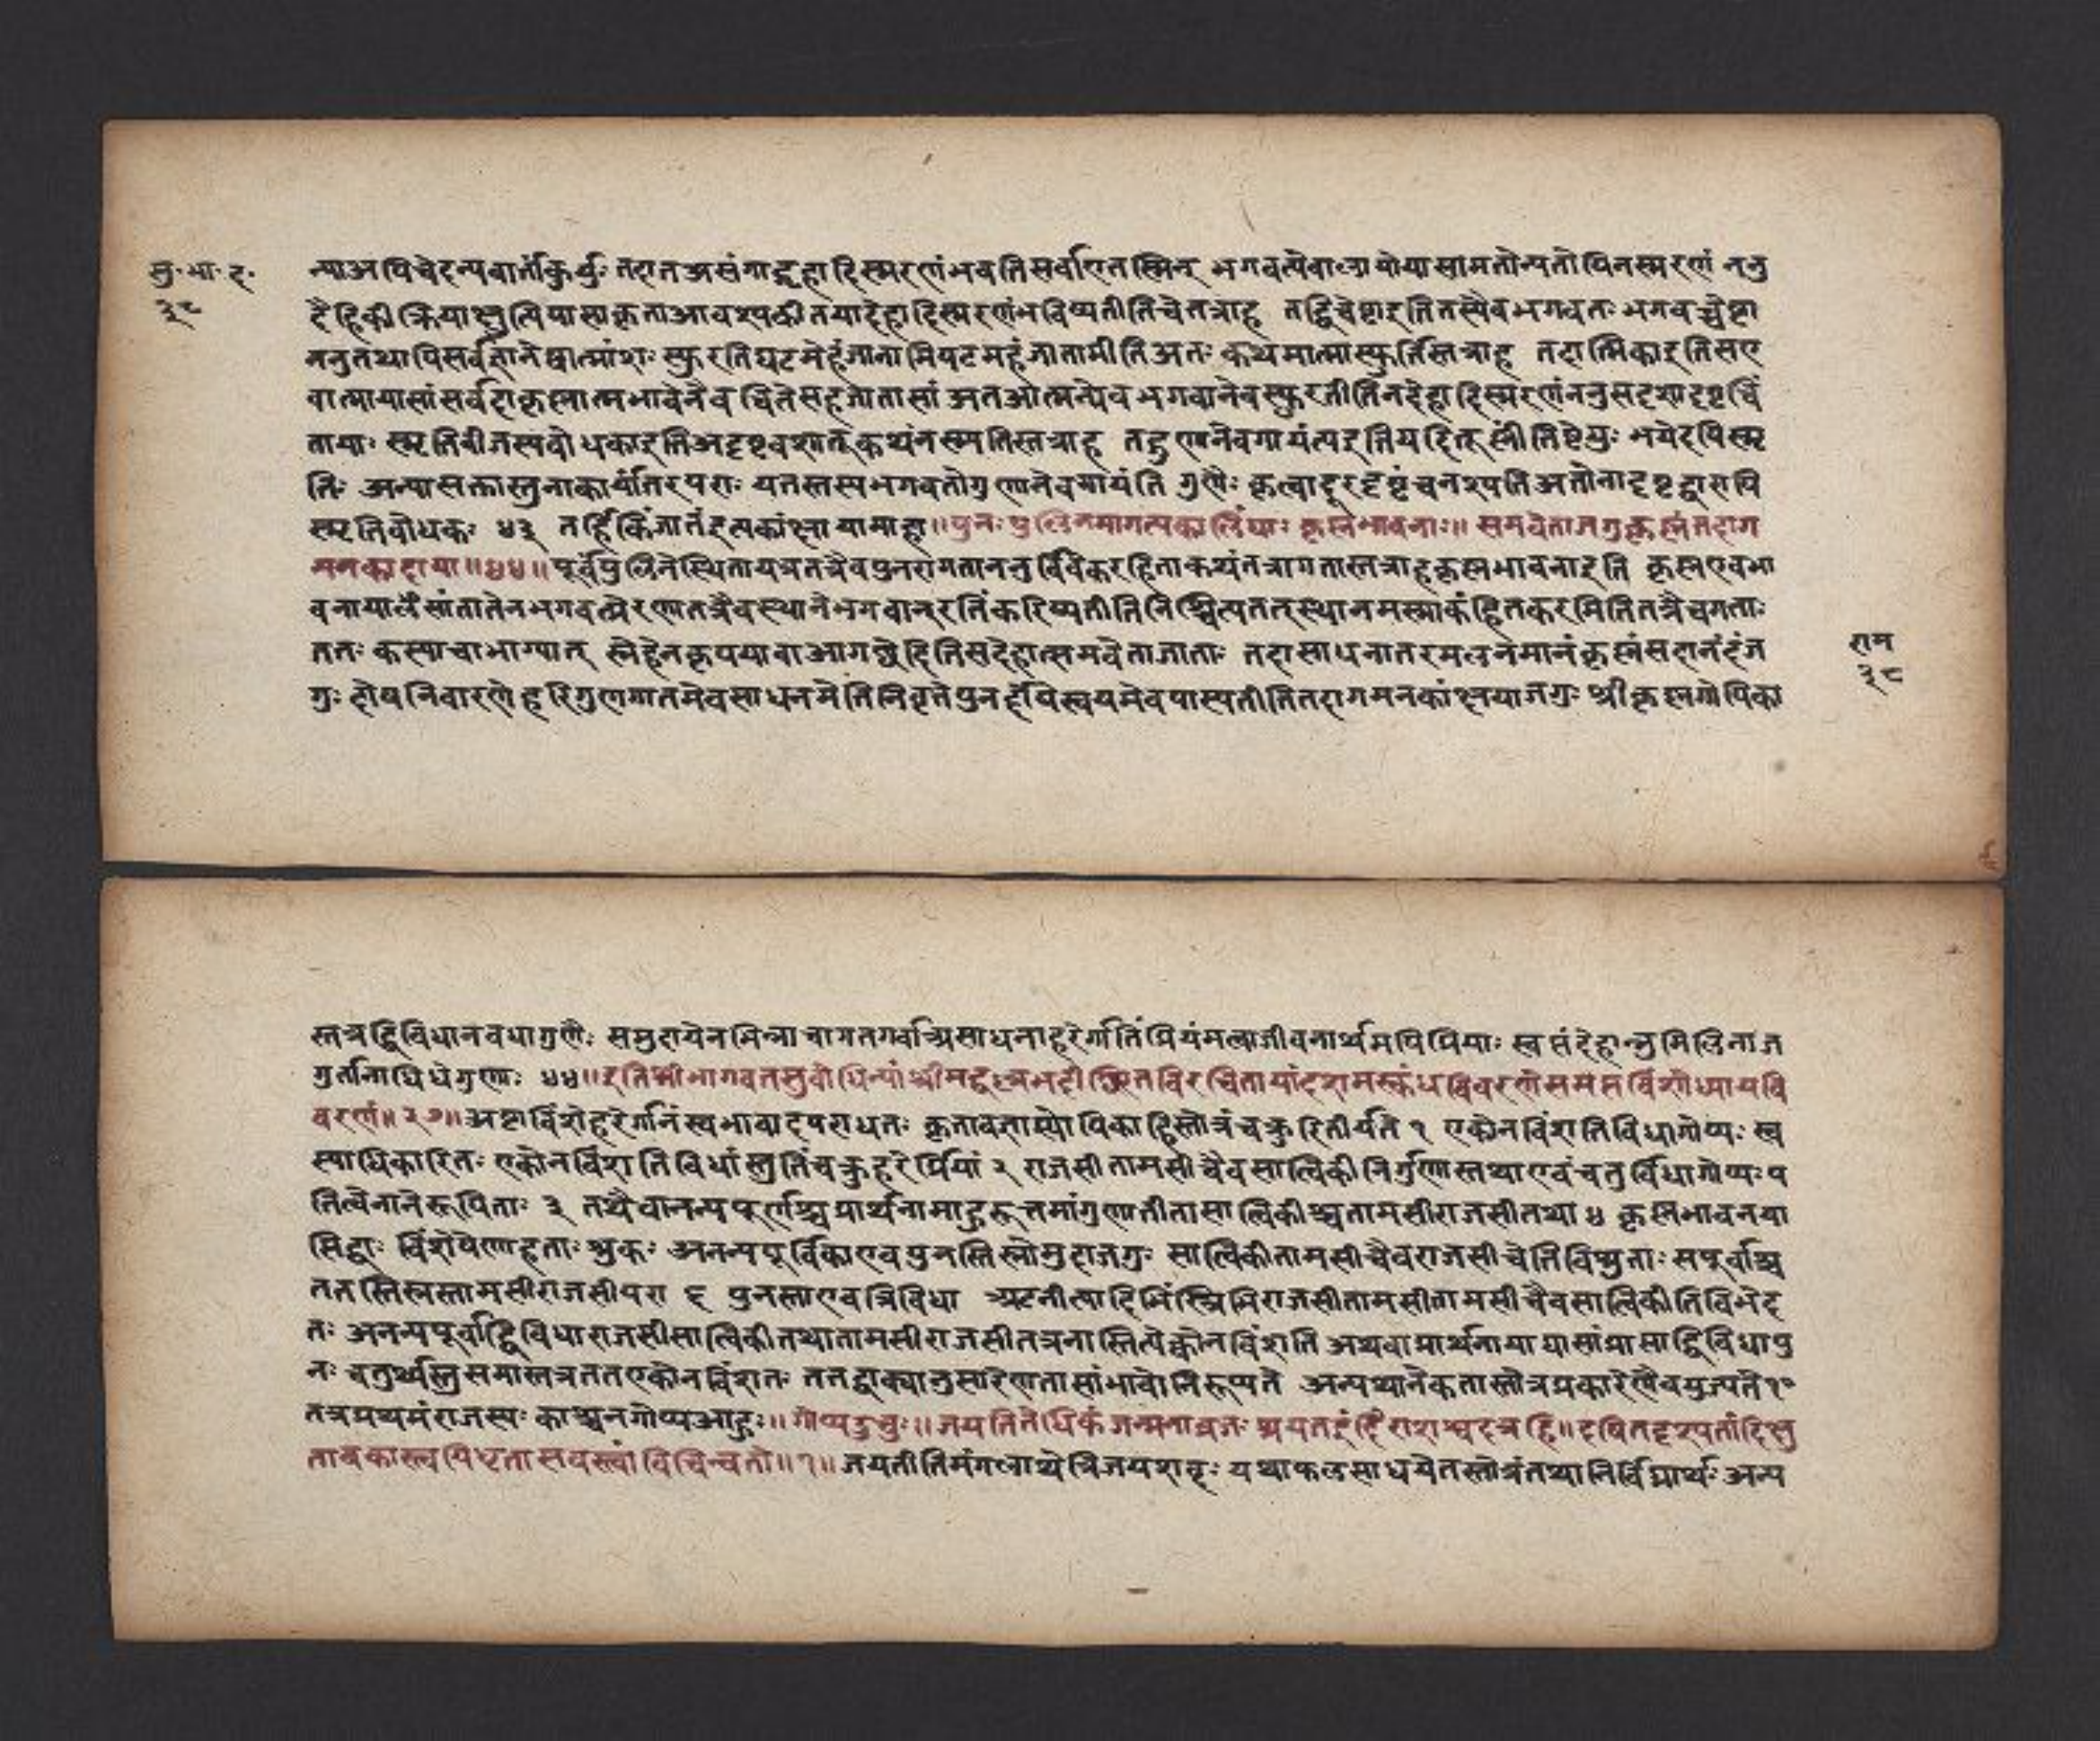 सु॰भा॰द॰
३८
न्या अपि चेदन्यवार्तां कुर्युः तदा तत्रसंगाद्गृहादिस्मरणं भवति सर्वा एतस्मिन् भगवत्येवालापो यासामतोन्यतोपि न स्मरणं ननु
दैहिकी क्रिया क्षुत्पिपासाकृता आवश्यकी तया देहादिस्मरणं भविष्यतीति चेत्तत्राह तद्विचेष्टा इति तस्यैव भगवतः भगवच्चेष्टा
ननु तथापि सर्वज्ञाने ष्वात्मांशः स्फुरति घटमहं जानामि पटमहं जानामीति अतः कथमात्मास्फुर्तिस्तत्राह तदात्मिका इति स ए
वात्मा यासां सर्वदा कृष्णात्मभावेनैव चिते सह जातासां अत आत्मन्येव भगवानेव स्फुरतीति न देहादिस्मरणं ननु सदृशादृष्टचिं
तायाः स्मृतिबीजस्य बोधका इति अदृष्टवशात् कथं न स्मृतिस्तत्राह तद्गुणानेव गायंत्य इति यदि तूष्णीं तिष्ठेयुः भवेदपि स्मृ
तिः अन्यासक्तास्तु नाकार्यांतरपराः यतस्तस्य भगवतो गुणानेव गायंति गुणैः कृत्वा दूरदृष्टं च नश्यति अतो नादृष्टद्वारापि
स्मृतिबोधकः ४३ तर्हि किं जातं इत्यकांक्षायामाहा॥पुनः पुलिनमागत्य कालिंद्याः कृष्णभावनाः॥ समवेता जगुः कृष्णं तदाग
मनकांक्षया॥४४॥पूर्वं पुलिने स्थिता यत्र तत्रैव पुनरागता ननु विवेकरहिता कथं तत्रागतास्तत्राह कृष्णभावना इति कृष्ण एव भा
वना यासां ता तेन भगवत्प्रेरणात तत्रैव स्थाने भगवान् रतिं करिष्यतीति निश्चित्य तत् स्थानमस्माकं हितकरमिति तत्रैव गताः
ततः कस्याचाभाग्यात् स्नेहेन कृपया वा आगच्छेदिति सदेहात्समवेता जाताः तदा साधनांतरमलभमानं कृष्णं सदानंदं ज
गुः दोषनिवारणे हरिगुणगानमेव साधनमेति निवृत्ते पुनर्दोषे स्वयमेव यास्यतीति तदागमनकांक्षया जगुः श्रीकृष्णगोपिका
राम
३८
स्तत्र द्विविधा नवधा गुणैः समुदायेन मिन्ना चागतगर्वाश्चिसाधना हरेर्गतिं प्रियं मत्वा जीवनार्थमपि प्रियाः स्व संदेहान्नु मिलिना ज
गुर्तानाधिधे गुणाः ४४॥इति श्रीभागवतसुबोधिन्यां श्रीमद्वल्लभदीक्षितविरचितायां दशमस्कंधविवरणे सप्तविंशोध्यायवि
वरणं॥२७॥अष्टाविंशे हरेर्गानं स्वभावादपराधतः कृतावतास्योपिका द्विस्तोत्रं चक्रुरितीर्यते १ एकोनविंशतिविधा गोप्यः स्व
स्याधिकारितः एकोनविंशतिविधां स्तुतिं चक्रुर्हरेः प्रियां २ राजसी तामसी चैव सात्विकी निर्गुणास्तथा एवं चतुर्विधा गोप्यः प
तित्वेनाने रूपिताः ३ तथैवानन्यपूर्णाश्च प्रार्थनामाहुरुत्तमां गुणातीता सात्विकीश्च तामसी राजसी तथा ४ कृष्णभावनया
सिद्धाः विंशेषेणाहृताः शुकः अनन्यपूर्विका एव पुनस्तिस्रो मुदा जगुः सात्विकी तामसी चैव राजसी चेति विश्रुताः सपूर्वाश्च
ततस्तिस्रस्तामसी राजसी परा ६ पुनस्ता एव त्रिविधा अटतीत्यादिभिंस्त्रिभि राजसी तामसी तामसी चैव सात्विकीति विभेद
तः अनन्यपूर्वा द्विविधा राजसी सात्विकी तथा तामसी राजसी तत्र नास्तित्येकोनविंशति अथवा प्रार्थनाया यासां प्रासा द्विविधा पु
नः चतुर्थ्यस्तु समास्तत्र तत एकोनविंशतः तत्तद्वाक्यानुसारेण तासां भावो निरूप्यते अन्यथानेकता स्तोत्रप्रकारेणैव युज्यते १०
तत्र प्रथमं राजस्यः काश्चन गोप्य आहुः॥गोप्य उचुः॥जयति तेधिकं जन्मना व्रजः श्रयत इंदिरा शश्वदत्र हि॥दयित दृश्यतां दिक्षु
तावकास्त्वयि धृतासवस्त्वां विचिन्वते॥१॥जयतीति मंगलार्थे त्रिजयशब्दः यथा फलसाधयेत स्तोत्रं तथा निर्विघ्नार्थः अन्य